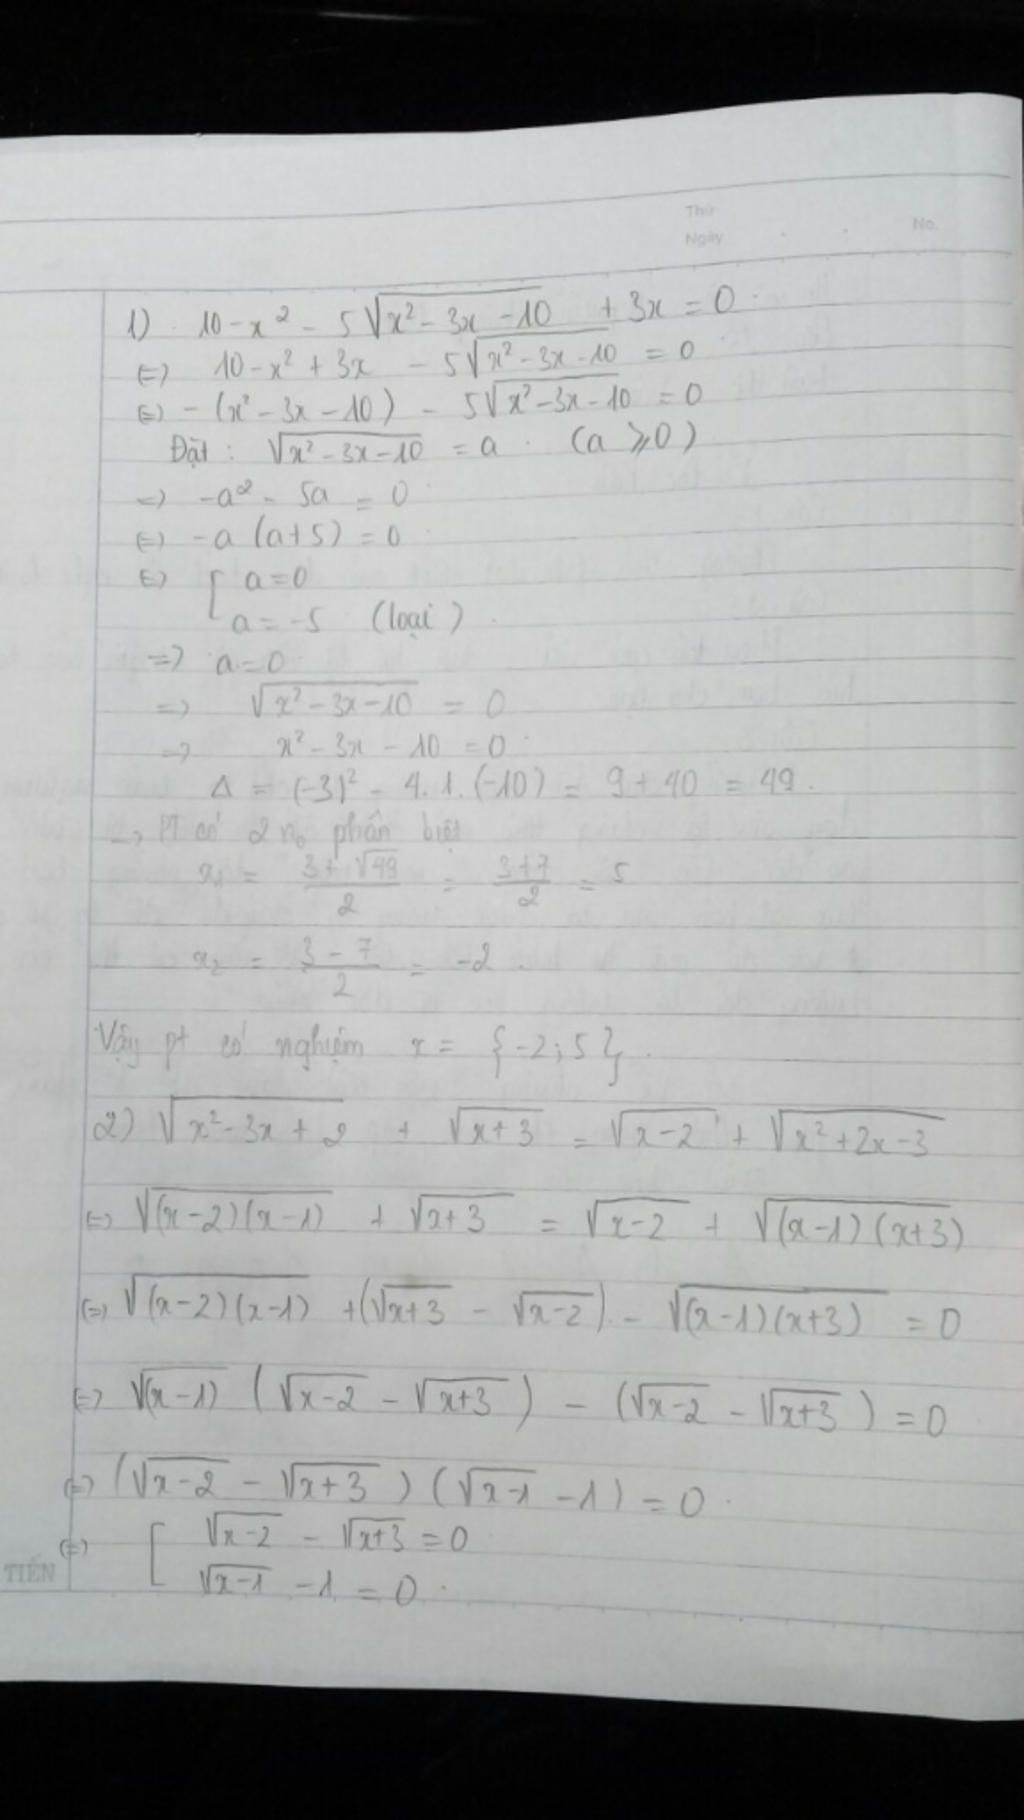 Thứ
Ngày
No.
1) 10 - x² - 5√(x² - 3x - 10) + 3x = 0.
(=) 10 - x² + 3x - 5√(x² - 3x - 10) = 0
(=) - (x² - 3x - 10) - 5√(x² - 3x - 10) = 0
Đặt : √(x² - 3x - 10) = a . (a ⩾ 0)
=) -a² - 5a = 0
(=) -a (a+5) = 0
(=) [ a = 0
a = -5 (loại) .
=) a = 0
=) √(x² - 3x - 10) = 0
=) x² - 3x - 10 = 0
Δ = (-3)² - 4.1.(-10) = 9 + 40 = 49.
=> PT có 2 n₀ phân biệt
x₁ = (3 + √49)/2 = (3+7)/2 = 5
x₂ = (3 - 7)/2 = -2 .
Vậy pt có nghiệm x = {-2; 5} .
2) √(x² - 3x + 2) + √(x+3) = √(x-2) + √(x² + 2x - 3)
(=) √((x-2)(x-1)) + √(x+3) = √(x-2) + √((x-1)(x+3))
(=) √((x-2)(x-1)) + (√(x+3) - √(x-2)) - √((x-1)(x+3)) = 0
(=) √(x-1) (√(x-2) - √(x+3)) - (√(x-2) - √(x+3)) = 0
(=) (√(x-2) - √(x+3)) (√(x-1) - 1) = 0 .
(=) [ √(x-2) - √(x+3) = 0
√(x-1) - 1 = 0 .
TIẾN